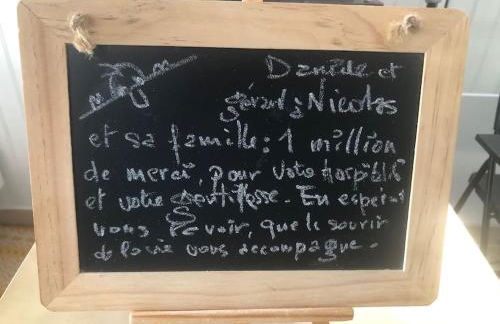 Danièle et
gérard ; Nicolas
et sa famille : 1 million
de merci, pour votre
et votre gentillesse. En espérant
vous revoir, que le sourir
de la vie vous accompagne.